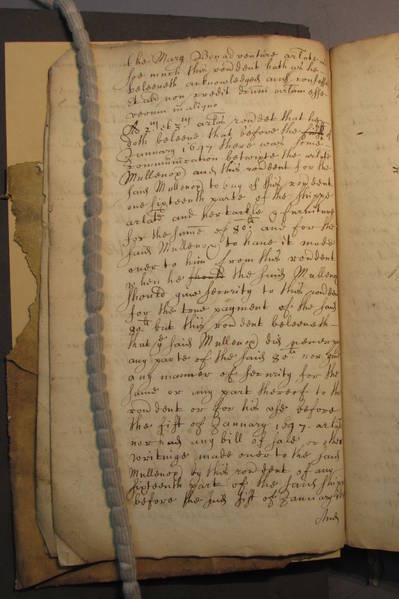 the Mary Bonadventure arlate
soe much this rendent hath as he
beleeveth acknowledged and confessed
et aliter non credit dictum artum esse
verum in aliquo
To 2um et 3um artlos rondet that hee
doth beleeve that before the
January 1647 there was some
communication betwixte the arlate
Mullenox and this rendent for the
said Mullenox to buy of this rendent
one sixteenth parte of the shippe
arlate and her tackle & furniture
for the summe of 80li and for the
said Mullenox to have it made
over to him from this rendent
when he should the said Mullenox
should give security to this rendent
for the true payment of the said
80li but this rendent beleeveth
that ye said Mullenox did never pay
any parte of the said 80li nor give
any manner of security for the
same or any part thereof to this
rendent or for his use before
the fift of January 1647 arlate
nor had any bill of sale or other
writinge made over to the said
Mullenox by this rendent of any
sixteenth part of the said shipp
before the said fift of January
And